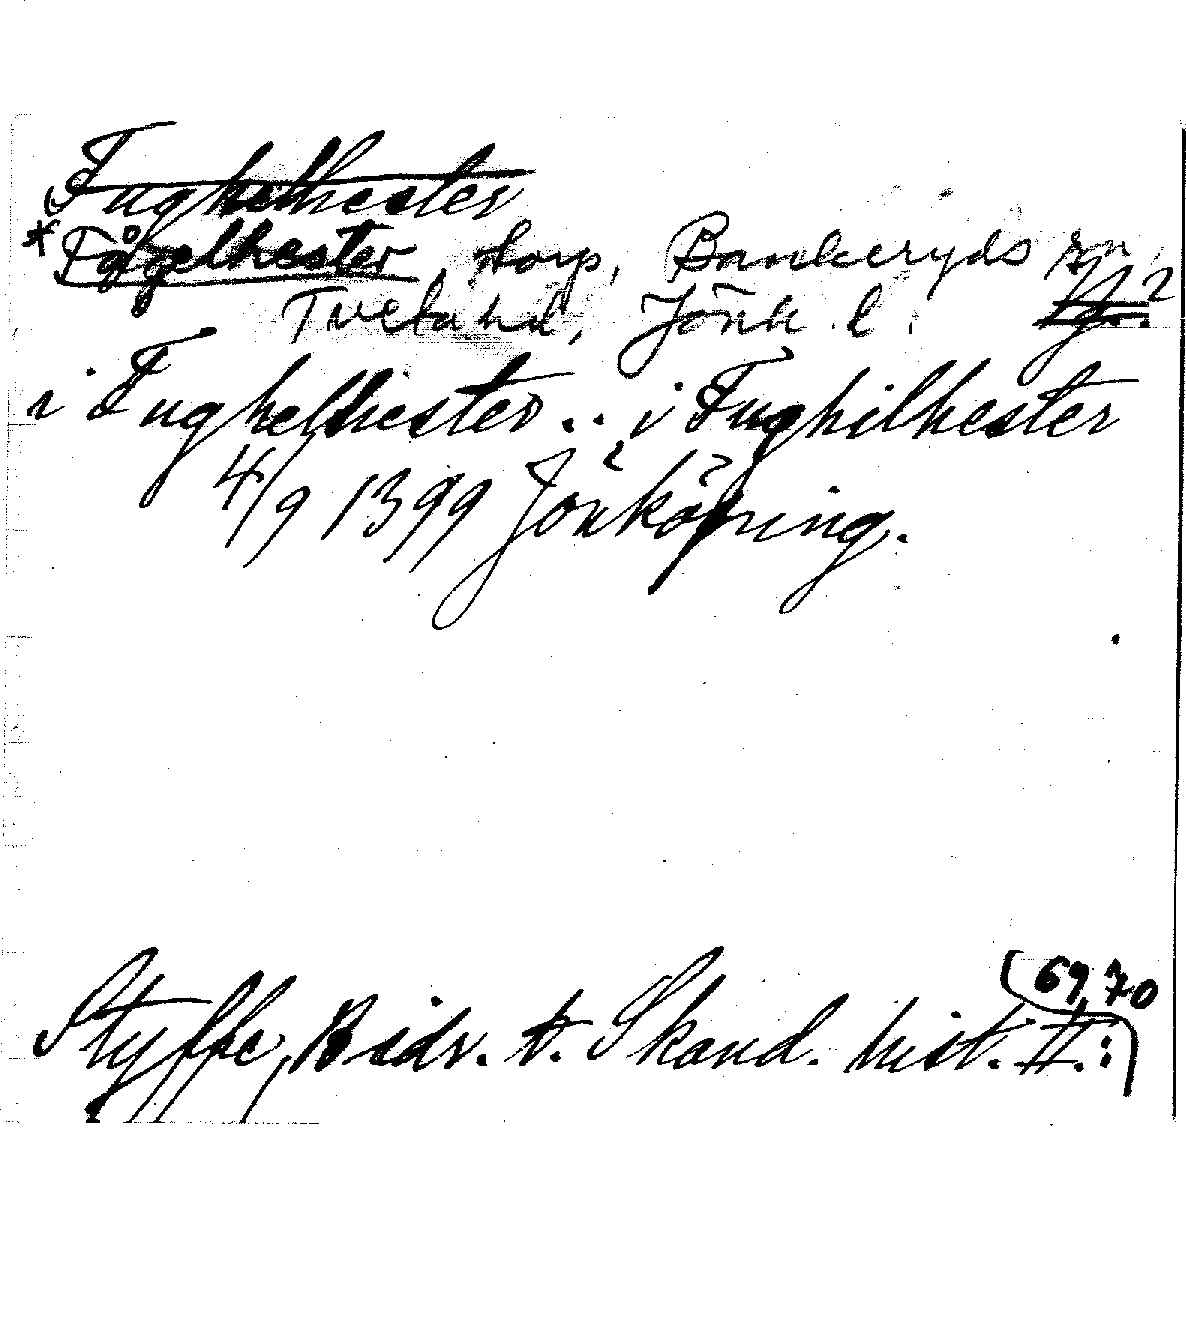 Fughelhester
* Fågelhester, torp, Bankeryds sn,
Tveta hd, Jönk l.
i Fughelhester .. i Fughilhester
4/9 1399 Jönköping.
Styffe, Bidr. t. Skand. hist. II: 69, 70